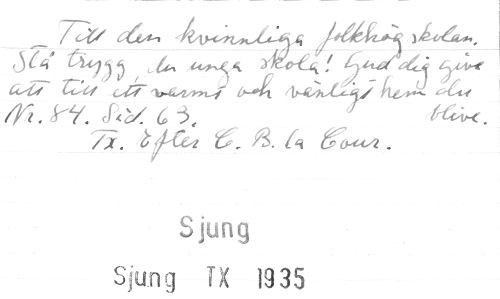 Till den kvinnliga folkhögskolan.
Stå trygg, du unga skola! Gud dig give
att till ett varmt och vänligt hem du
blive.
Nr. 84. Sid. 63.
Tx. Efter C. B. la Cour.
Sjung
Sjung TX 1935